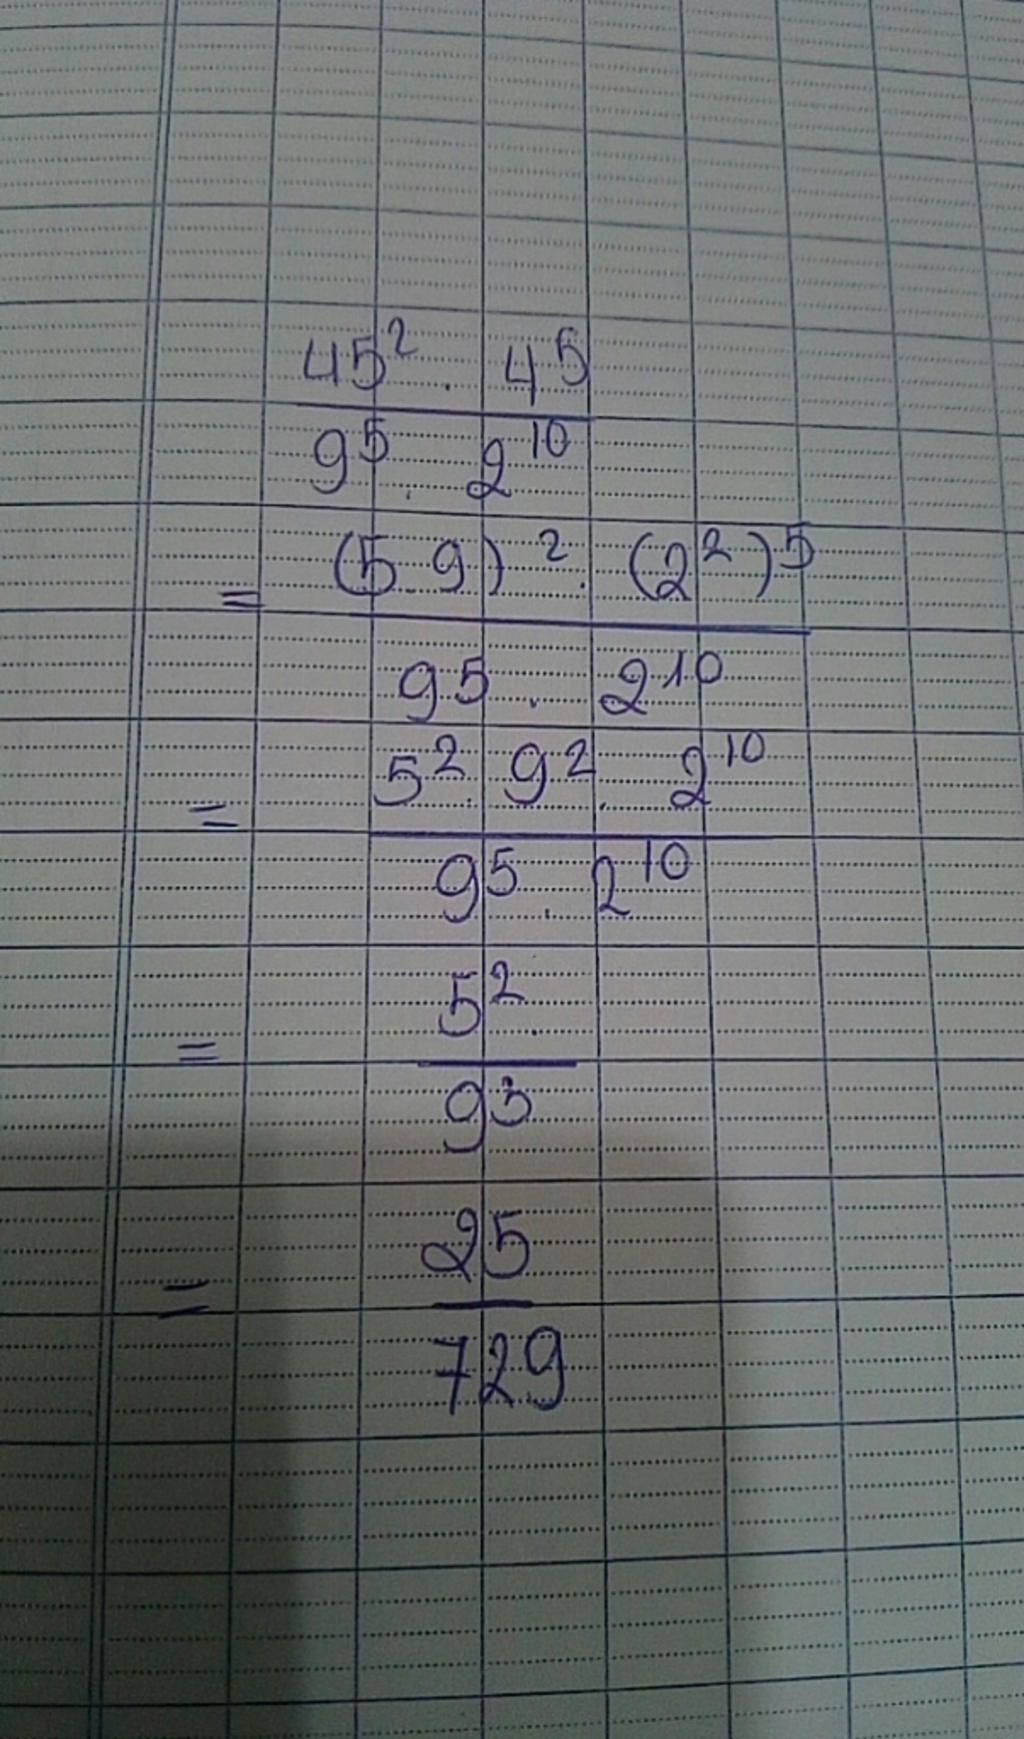 45² . 4⁵
9⁵ . 2¹⁰
= (5.9)² . (2²)⁵
9⁵ . 2¹⁰
= 5² . 9² . 2¹⁰
9⁵ . 2¹⁰
= 5² .
9³
= 25
729